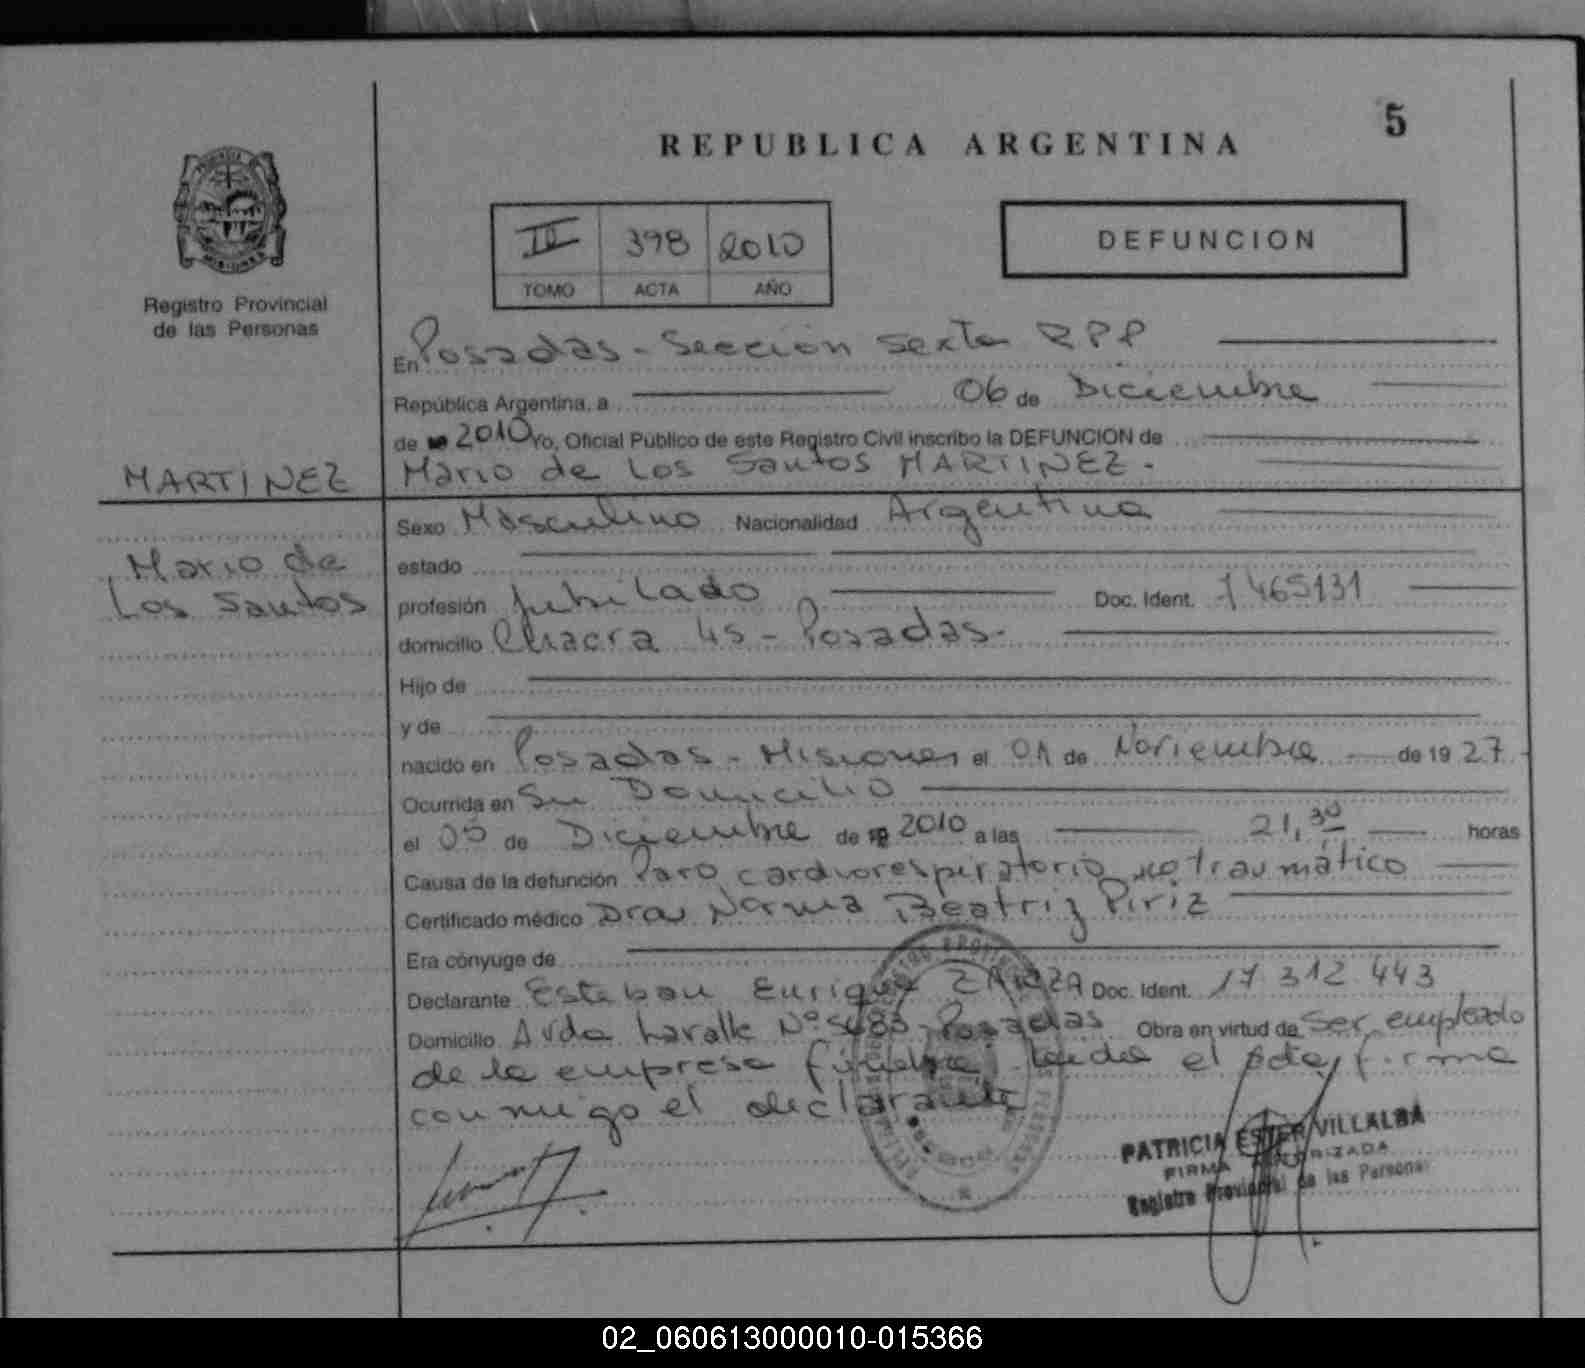 5
REPUBLICA ARGENTINA
III 398 2010
TOMO ACTA AÑO
DEFUNCION
Registro Provincial
de las Personas
En Posadas - Sección Sexta RPP
República Argentina, a 06 de Diciembre
de 2010 Yo, Oficial Público de este Registro Civil inscribo la DEFUNCION de
MARTINEZ Mario de Los Santos MARTINEZ.
Sexo Masculino Nacionalidad Argentina
Mario de
estado
Los Santos
profesión Jubilado Doc. Ident. 7465131
domicilio Chacra 45 - Posadas.
Hijo de
y de
nacido en Posadas - Misiones el 01 de Noviembre de 1927
Ocurrida en Su Domicilio
el 05 de Diciembre de 2010 a las 21,30 horas
Causa de la defunción Paro cardiorespiratorio no traumático
Certificado médico Dra. Norma Beatriz Piriz
Era cónyuge de
Declarante Esteban Enrique ZARZA Doc. Ident. 17 312 443
Domicilio Avda Lavalle Nº 5683 - Posadas Obra en virtud de Ser empleado
de la empresa fúnebre leida el acta, firma
conmigo el declarante
PATRICIA ESTER VILLALBA
FIRMA AUTORIZADA
Registro Provincial de las Personas
02_060613000010-015366